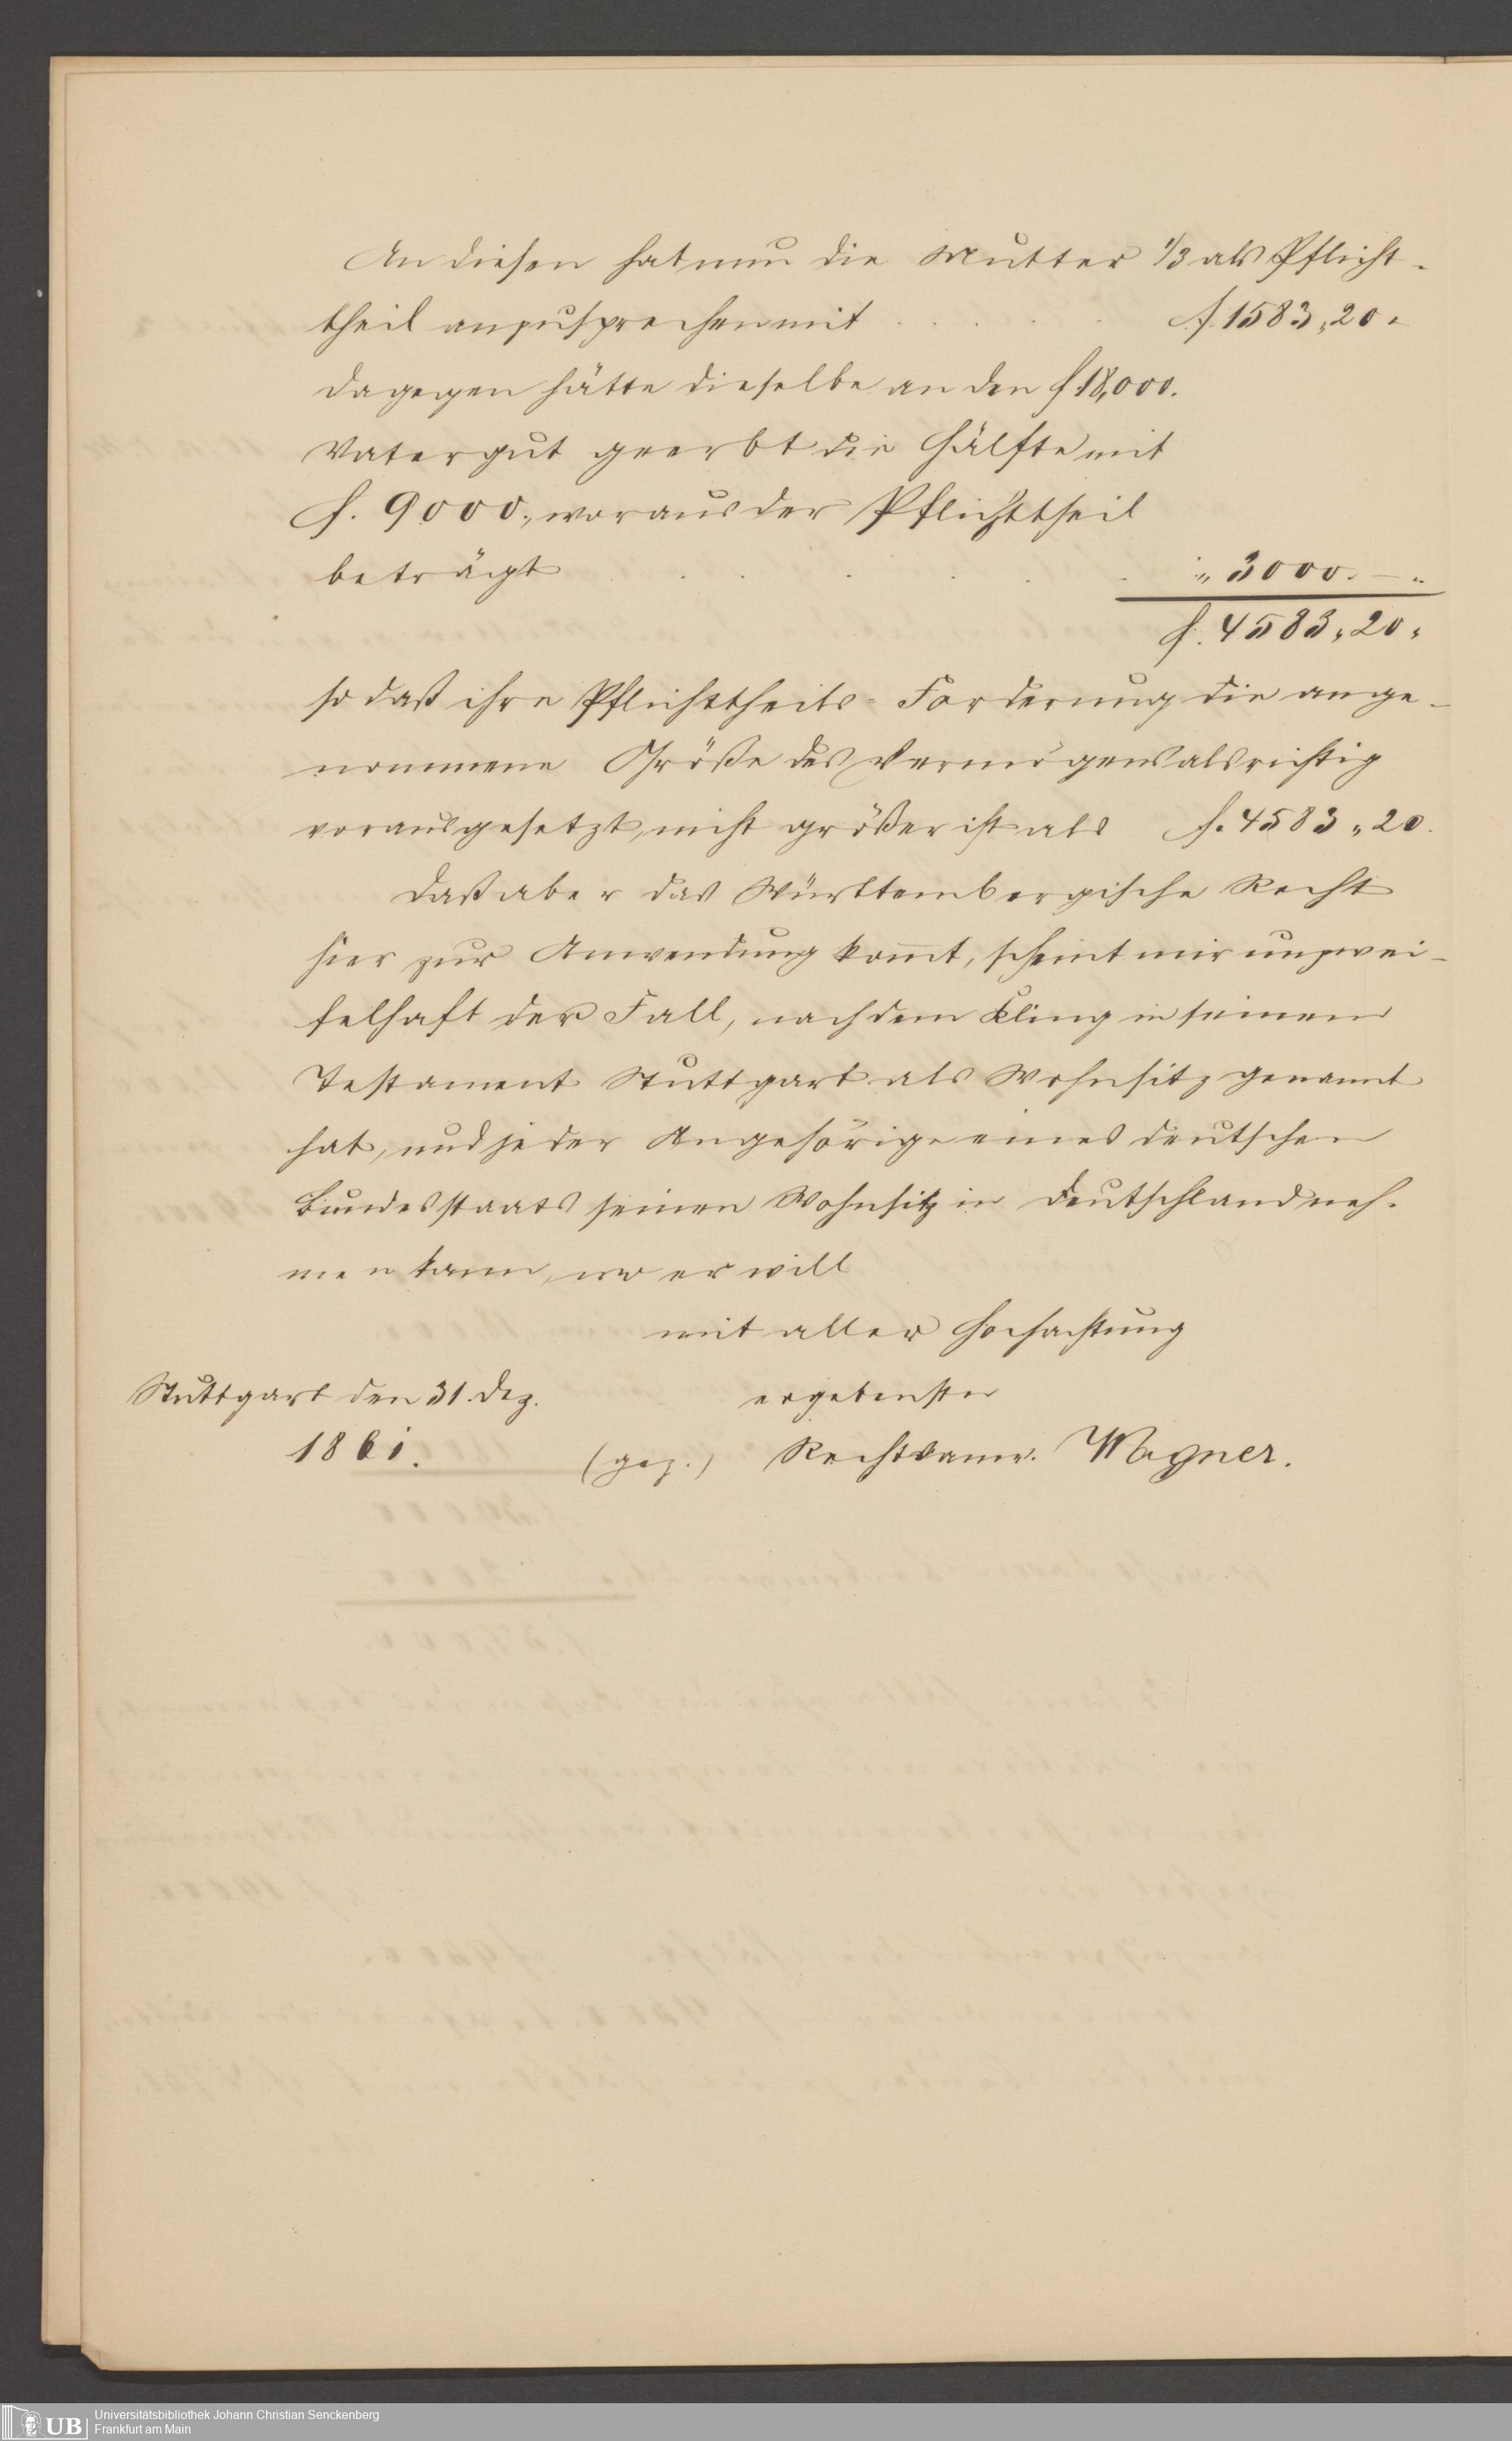 An diesen hat nun die Mutter 1/3 als Pflicht-
theil anzusprechen mit . . . . . f. 1583„20„
dagegen hätte dieselbe an den f 18,000.
Vatergut geerbt die Hälfte mit
f. 9000., woraus der Pflichttheil
beträgt . . . . . . „ 3000. — „
f. 4583„20„
so daß ihre Pflichttheils-Forderung die ange-
nommene Größe des Vermögens als richtig
vorausgesetzt, nicht größer ist als f. 4583„20.
Daß aber das Württembergische Recht
hier zur Anwendung kom̅t, scheint mir unzwei-
felhaft der Fall, nachdem Kling in seinem
Testament Stuttgart als Wohnsitz genannt
hat, und jeder Angehörige eines deutschen
Bundesstaats seinen Wohnsitz in Deutschland neh-
men kann, wo er will
mit aller Hochachtung
Stuttgart den 31. Dez. ergebenster
1861. (gez.) Rechtsanw. Wagner.
UB Universitätsbibliothek Johann Christian Senckenberg
Frankfurt am Main